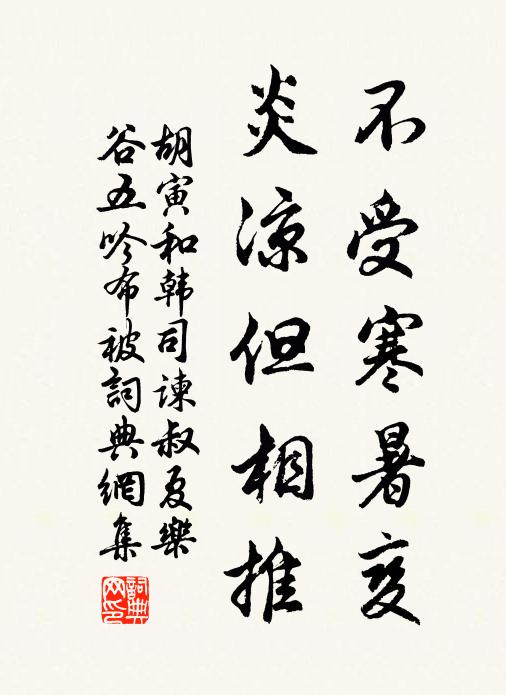 不受寒暑变
炎凉但相推
胡寅和韩司谏叔夏樂
谷五吟布被詞典網集
詞典網印